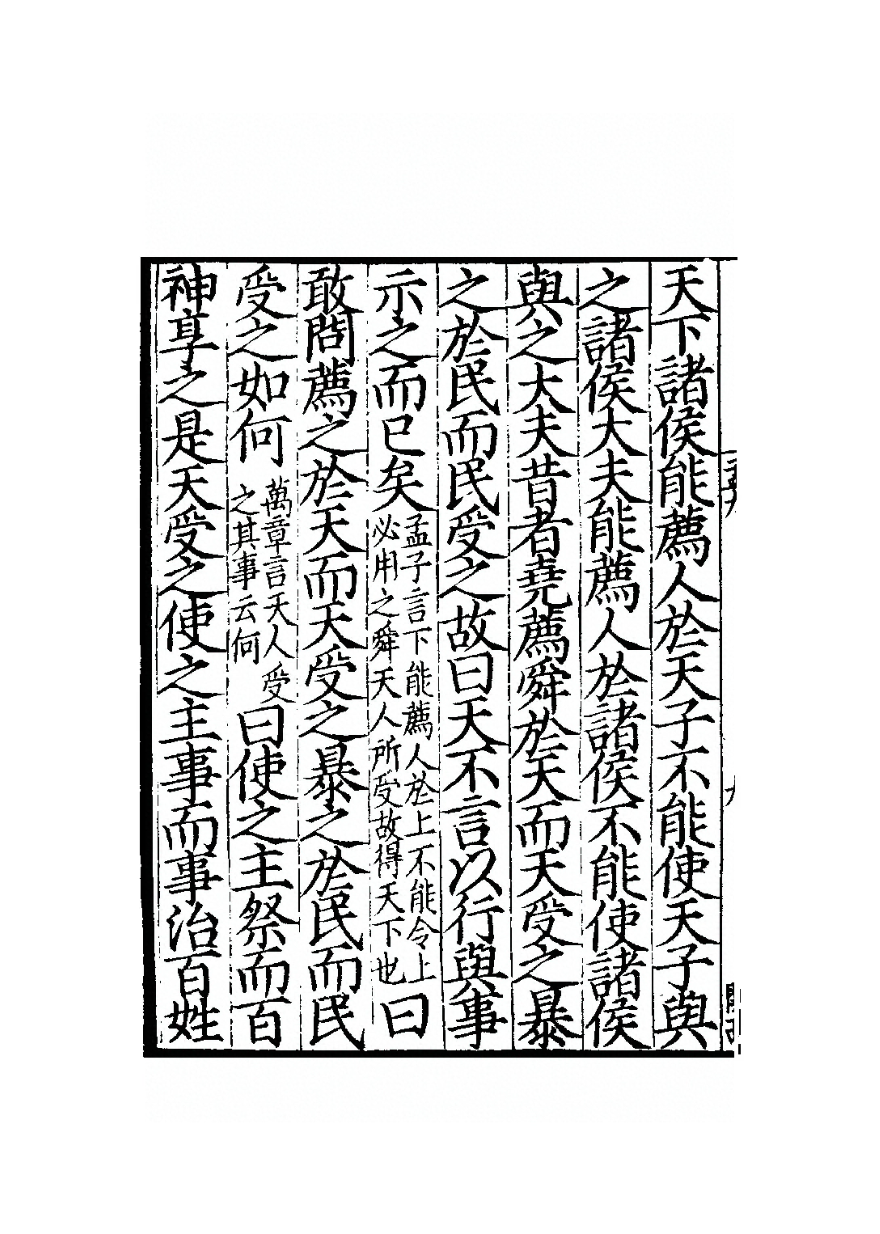 天下諸侯能薦人於天子不能使天子與
之諸侯大夫能薦人於諸侯不能使諸侯
與之大夫昔者堯薦舜於天而天受之暴
之於民而民受之故曰天不言以行與事
示之而已矣孟子言下能薦人於上不能令上必用之舜天人所受故得天下也曰
敢問薦之於天而天受之暴之於民而民
受之如何萬章言天人受之其事云何曰使之主祭而百
神享之是天受之使之主事而事治百姓